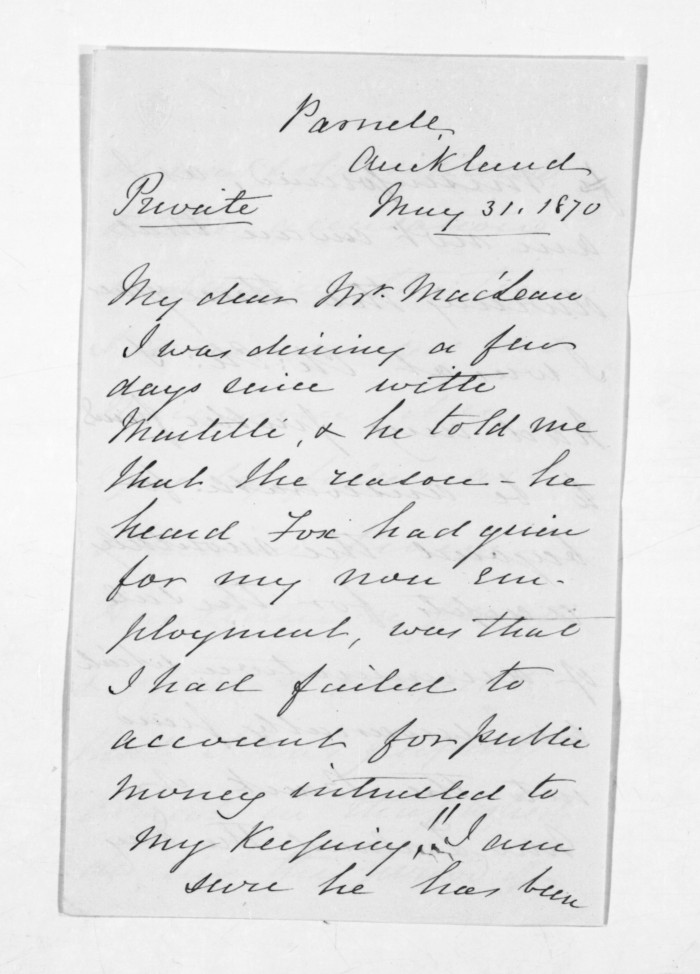 Parnell,
Auckland
Private May 31. 1870
My dear Mr. MacLean
I was dining a few
days since with
Martelli, & he told me
that the reason - he
heard Fox had given
for my non em-
ployment, was that
I had failed to
account for public
money intrusted to
my keeping!! I am
sure he has been